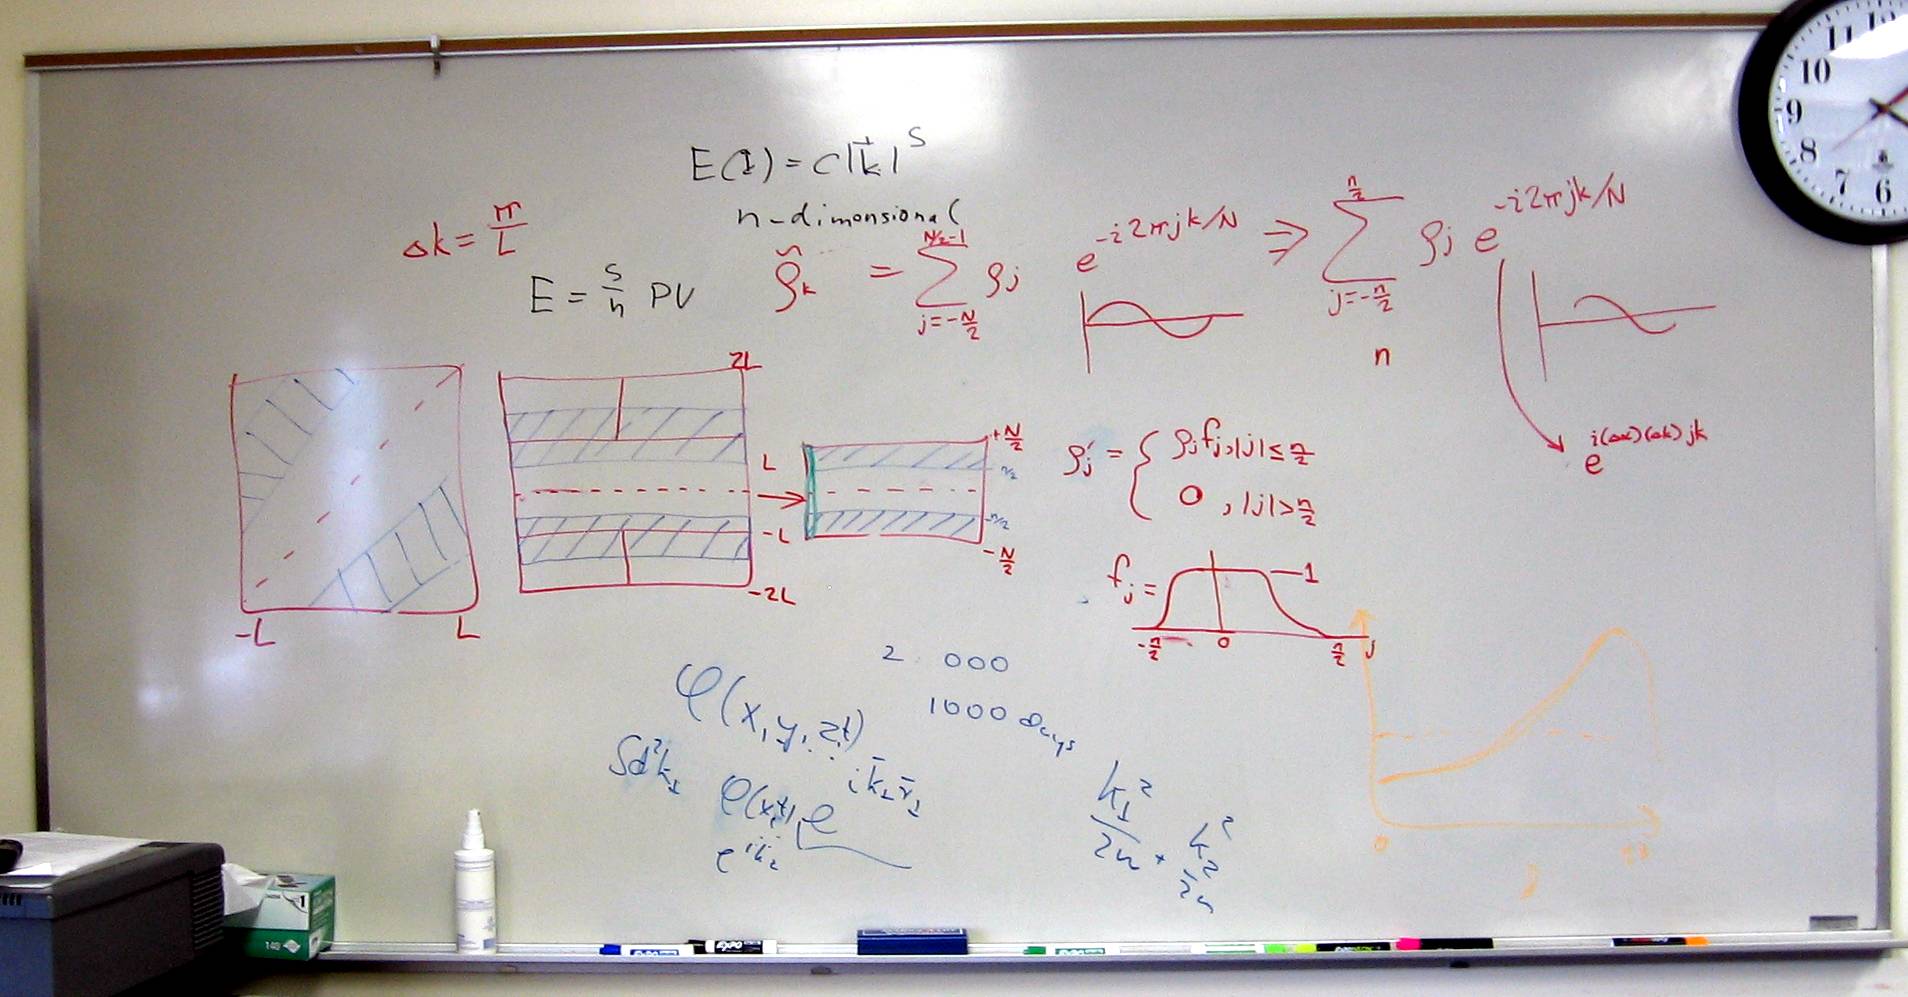 E(k) = c|k⃗|^s
n-dimonsional
Δk = π/L
E = s/n PV
ρ̃_k = Σ_{j=-N/2}^{N/2-1} ρ_j e^{-i2πjk/N} ⇒ Σ_{j=-n/2}^{n/2} ρ_j e^{-i2πjk/N}
n
e^{i(Δx)(Δk)jk}
2L
L
-L
-2L
+N/2
n/2
-n/2
-N/2
-L L
ρ'_j = { ρ_j f_j, |j| ≤ n/2
0, |j| > n/2
f_j =
1
-n/2 0 n/2 j
2 000
1000 days
φ(x, y, z, t)
∫d²k_⊥ φ(x, t) e^{i k̄_⊥ r̄_⊥}
e^{ik_z}
k_1²/2m + k_2²/2m
0
11
10
9
8
7
6
EXPO
148